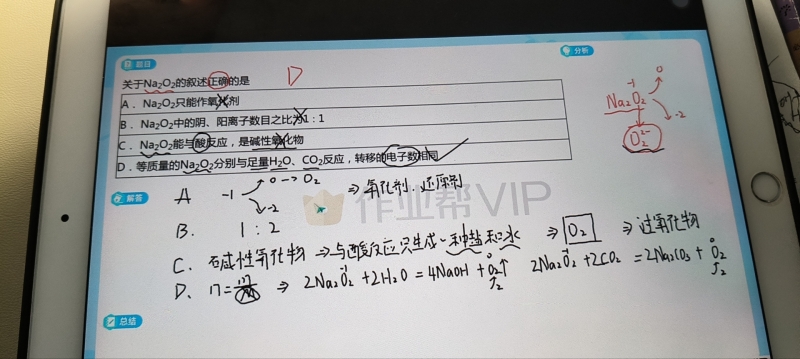 题目
分析
关于Na₂O₂的叙述正确的是 D
A．Na₂O₂只能作氧化剂
B．Na₂O₂中的阴、阳离子数目之比为1：1
C．Na₂O₂能与酸反应，是碱性氧化物
D．等质量的Na₂O₂分别与足量H₂O、CO₂反应，转移的电子数相同
-1 0
Na₂O₂ -2
O₂²⁻
解答
A -1 0 → O₂ ⇒ 氧化剂、还原剂
-2
作业帮VIP
B. 1:2
C. 碱性氧化物 ⇒ 与酸反应只生成一种盐和水 ⇒ O₂ ⇒ 过氧化物
D. n=m/M ⇒ 2Na₂O₂+2H₂O=4NaOH+O₂↑ 2Na₂O₂+2CO₂=2Na₂CO₃+O₂
总结